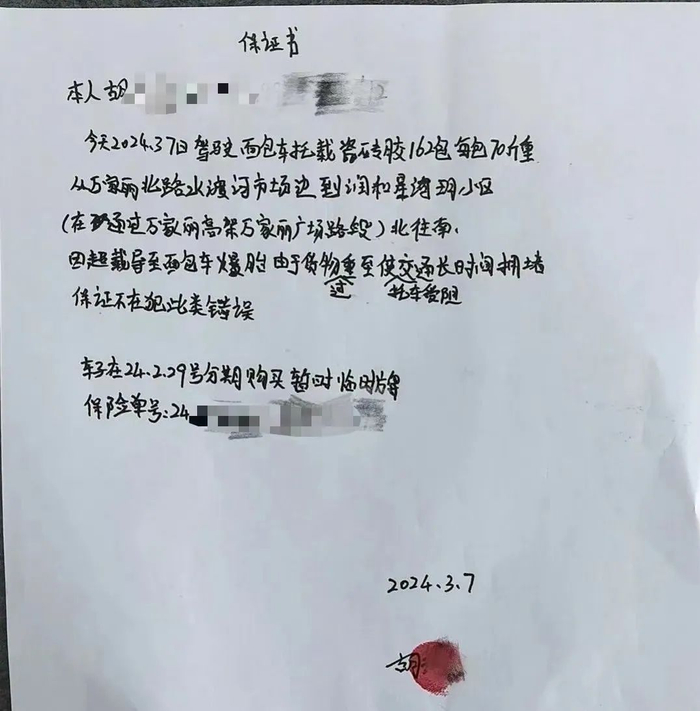 保证书
本人胡
今天2024.3.7日驾驶面包车托载瓷砖胶162包每包70斤重
从万家丽北路水渡河市场边到润和星湾小区
(在通过万家丽高架万家丽广场路段)北往南.
因超载导至面包车爆胎由于货物过重至使托车受阻交通长时间拥堵
保证不在犯此类错误
车子在24.2.29号分期购买暂时临时牌
保险单号:24
2024.3.7
胡